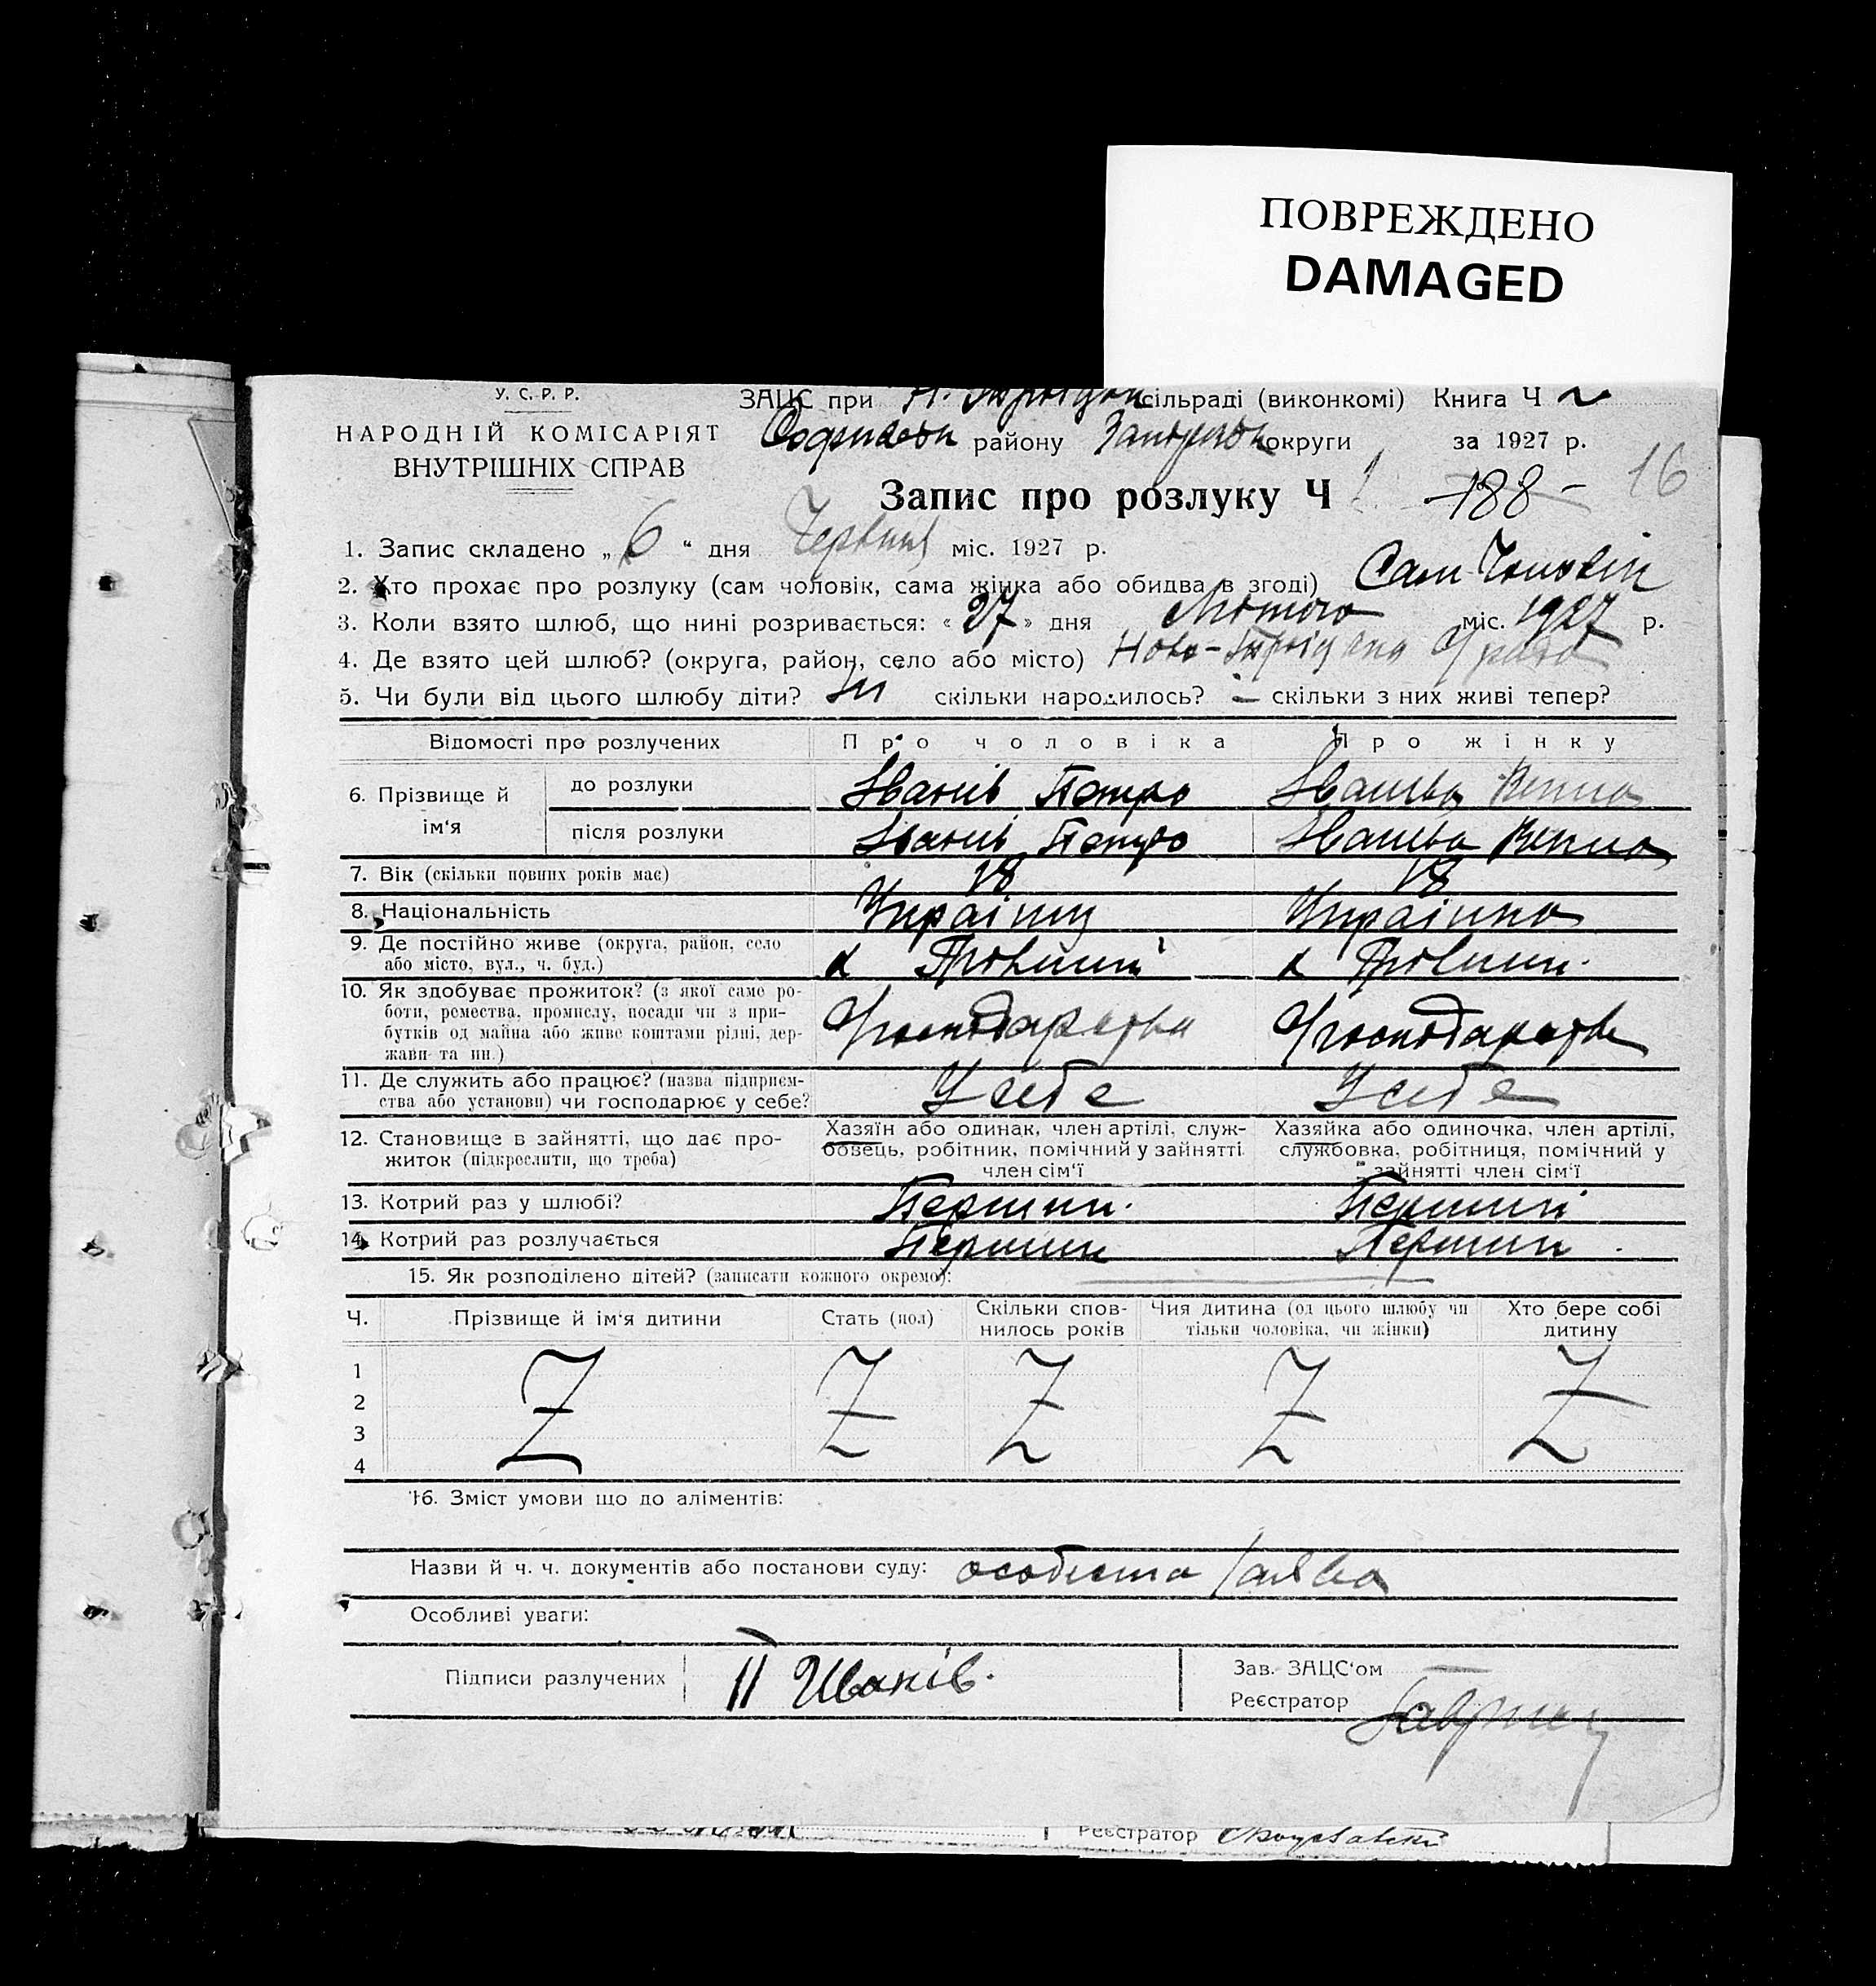 ПОВРЕЖДЕНО
DAMAGED
У. С. Р. Р.
НАРОДНІЙ КОМІСАРІЯТ
ВНУТРІШНІХ СПРАВ
ЗАЦС при сільраді (виконкомі) Книга Ч
району округи за 1927 р.
16
Запис про розлуку Ч 188
1. Запис складено „ 6 “ дня Червня міс. 1927 р.
2. Хто прохає про розлуку (сам чоловік, сама жінка або обидва в згоді) Сам Чоловік
3. Коли взято шлюб, що нині розривається: « 27 » дня Лютого міс. 1927 р.
4. Де взято цей шлюб? (округа, район, село або місто) Ново-
5. Чи були від цього шлюбу діти? Ні скільки народилось? — скільки з них живі тепер?
Відомості про розлучених Про чоловіка Про жінку
6. Прізвище й ім‘я до розлуки Іванів Петро Іванова
після розлуки Іванів Петро Іванова
7. Вік (скільки повних років має) 18 18
8. Національність Українц Українка
9. Де постійно живе (округа, район, село
або місто, вул., ч. буд.)
10. Як здобуває прожиток? (з якої саме ро-
боти, ремества, промислу, посади чи з при-
бутків од майна або живе коштами рідні, дер-
жави та ин.)
Господарства Господарства
11. Де служить або працює? (назва підприєм-
ства або установи) чи господарює у себе?
У себе У себе
12. Становище в зайнятті, що дає про-
житок (підкреслити, що треба)
Хазяїн або одинак, член артілі, служ-
бовець, робітник, помічний у зайнятті
член сім‘ї
Хазяйка або одиночка, член артілі,
службовка, робітниця, помічний у
зайнятті член сім‘ї
13. Котрий раз у шлюбі? Перший Перший
14. Котрий раз розлучається Перший Перший
15. Як розподілено дітей? (записати кожного окремо):
Ч. Прізвище й ім‘я дитини Стать (пол) Скільки спов-
нилось років Чия дитина (од цього шлюбу чи
тільки чоловіка, чи жінки) Хто бере собі
дитину
1
2
3
4
Z Z Z Z Z
16. Зміст умови що до аліментів:
Назви й ч. ч. документів або постанови суду: особиста заява
Особливі уваги:
Підписи разлучених П Иванів.
Зав. ЗАЦС‘ом
Реєстратор
Реєстратор